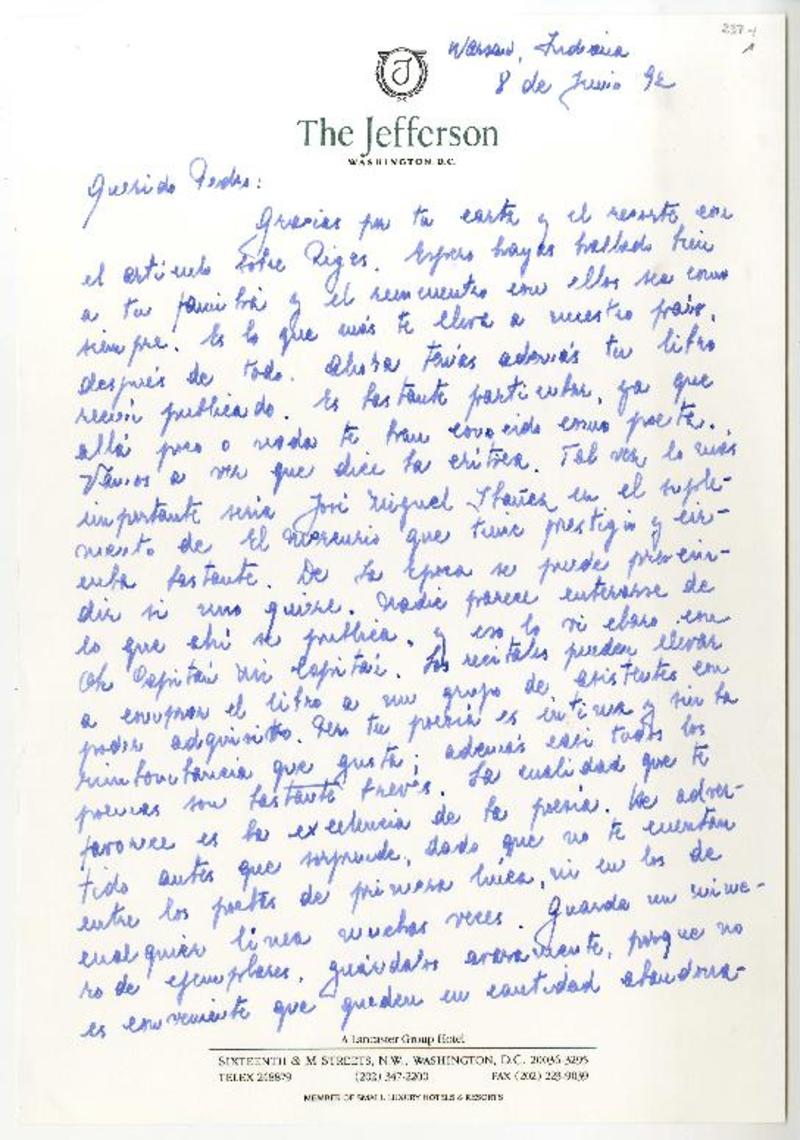 237-1
Warsaw, Indiana
8 de Junio 92
The Jefferson
WASHINGTON D.C.
Querido Pedro:
Gracias por tu carta y el recorte con
el artículo sobre Riges. Espero hayas hallado bien
a tu familia y el reencuentro con ellos sea como
siempre. Es lo que más te lleva a nuestro país,
después de todo. Ahora tenías además tu libro
recién publicado. Es bastante particular, ya que
allá poco o nada te han conocido como poeta.
Vamos a ver que dice la crítica. Tal vez lo más
importante sería José Miguel Ibáñez en el suple-
mento de El Mercurio que tiene prestigio y cir-
cula bastante. De La Epoca se puede prescin-
dir si uno quiere. Nadie parece enterarse de
lo que ahí se publica, y eso lo vi claro con
Oh Capitán Mi Capitán. Los recitales pueden llevar
a comprar el libro a un grupo de asistentes con
poder adquisitivo. Pero tu poesía es íntima y sin la
rimbombancia que gusta; además casi todos los
poemas son bastante breves. La cualidad que te
favorece es la excelencia de la poesía. He adver-
tido antes que sorprende, dado que no te cuentan
entre los poetas de primera línea, ni en los de
cualquier línea muchas veces. Guarda un núme-
ro de ejemplares, guárdalos avaramente, porque no
es conveniente que queden en cantidad abandona-
A Lancaster Group Hotel
SIXTEENTH & M STREETS, N.W., WASHINGTON, D.C. 20036-3295
TELEX 248879 (202) 347-2200 FAX (202) 223-9039
MEMBER OF SMALL LUXURY HOTELS & RESORTS